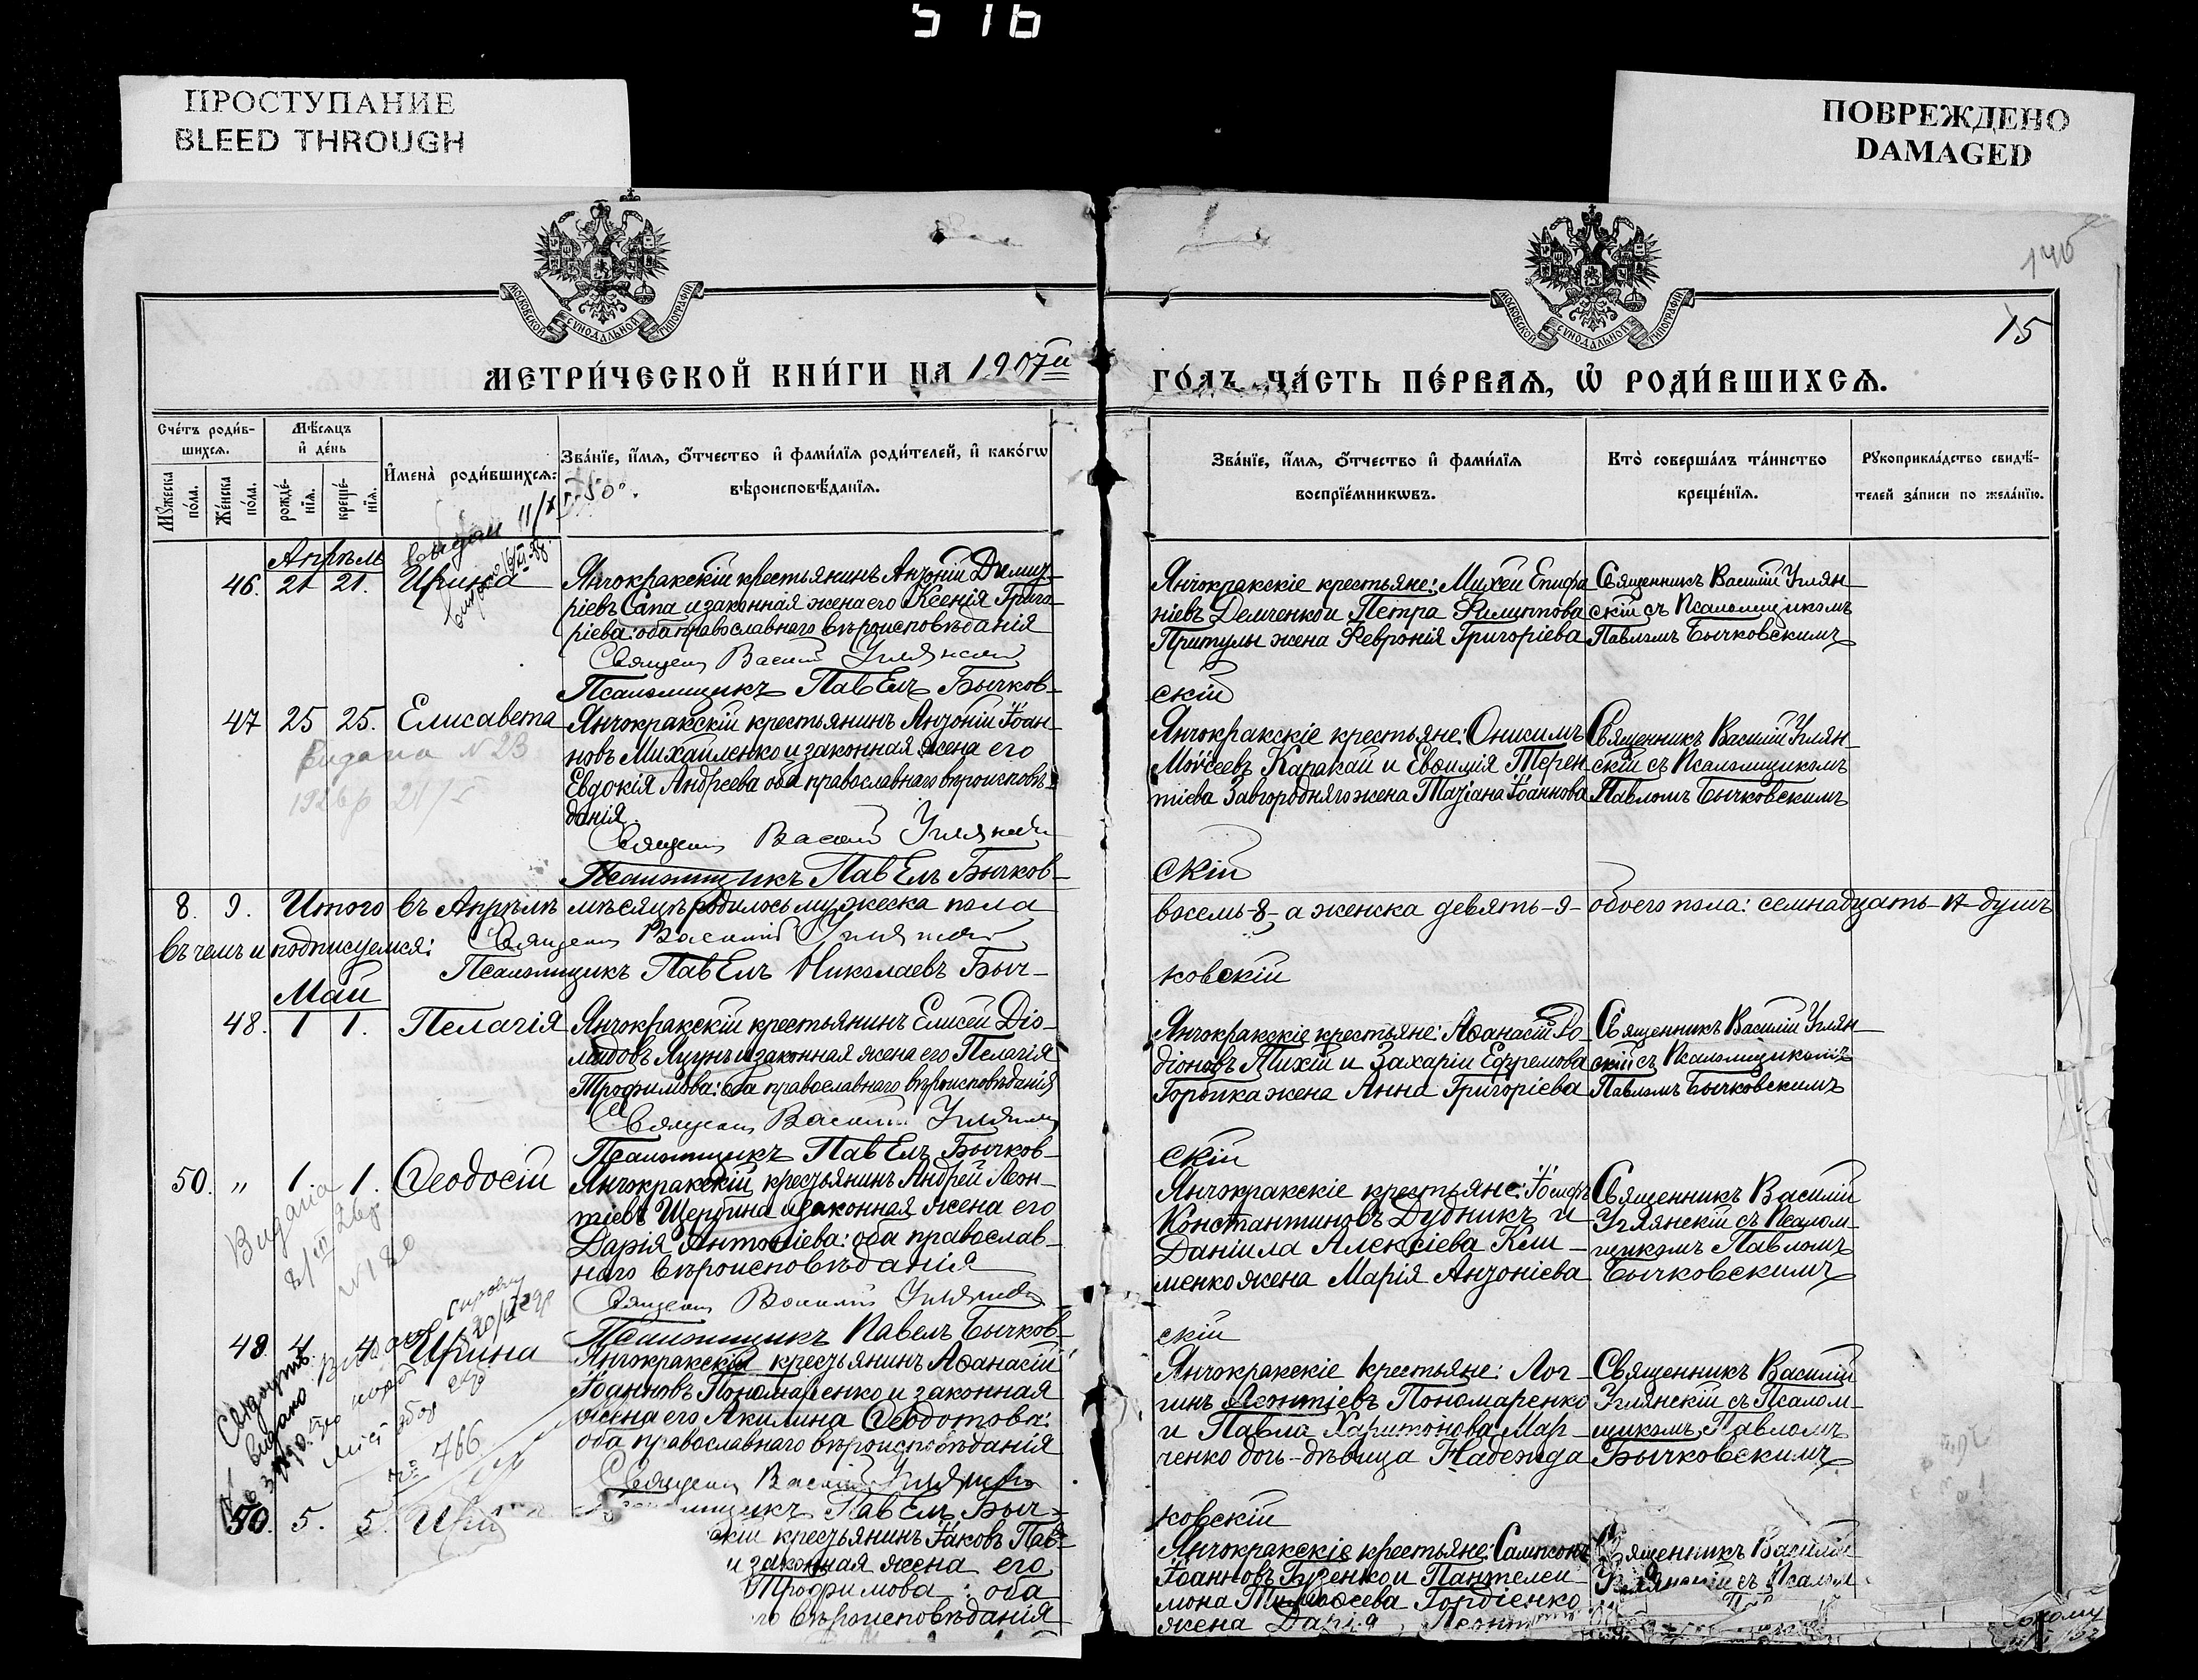 516
ПРОСТУПАНИЕ
BLEED THROUGH
ПОВРЕЖДЕНО
DAMAGED
МОСКОВСКОЙ СѴНОДАЛЬНОЙ ТИПОГРАФІИ
МОСКОВСКОЙ СѴНОДАЛЬНОЙ ТИПОГРАФІИ
15
МЕТРИ́ЧЕСКОЙ КНИ́ГИ НА 1907й
ГО́ДЪ ЧА́СТЬ ПЕ́РВАѦ, Ѡ҆ РОДИ́ВШИХСѦ.
Сче́тъ роди́в-
шихсѧ.
Мꙋ́жеска по́ла.
Же́нска по́ла.
Мѣ́сѧцъ
и҆ де́нь
рожде́-
нїѧ.
креще́-
нїѧ.
И҆мена̀ роди́вшихсѧ:
Зва́нїе, и҆́мѧ, ѻ҆́тчество и҆ фами́лїѧ роди́телей, и҆ како́гѡ
вѣроисповѣ́данїѧ.
Зва́нїе, и҆́мѧ, ѻ҆́тчество и҆ фами́лїѧ
воспрїе́мникѡвъ.
Кто̀ соверша́лъ та́инство
креще́нїѧ.
Рꙋкоприкла́дство свидѣ́-
телей за́писи по жела́нїю.
Апрѣль
46. 21 21. Ирина
Янчокракскій крестьянинъ Антоній Димит-
ріевъ Сапа и законная жена его Ксенія Григо-
ріева: оба православнаго вѣроисповѣданія
Священ Василій Углянскій
Псаломщикъ Павелъ Бычков-
Янчокракскіе крестьяне: Михей Епифа
ніевъ Демченко и Петра Филиппова
Притулы жена Февронія Григоріева
скій
Священникъ Василій Углян-
скій съ Псаломщикомъ
Павломъ Бычковскимъ
47 25 25. Елисавета
Видана N 23
Янчокракскій крестьянинъ Антоній Іоан-
новъ Михайленко и законная жена его
Евдокія Андреева оба православнаго вѣроисповѣ-
данія.
Священ Василій Углянскій
Псаломщикъ Павелъ Бычков-
Янчокракскіе крестьяне: Онисимъ
Моѵсеевъ Каракай и Евѳимія Терен
тіева Завгородняго жена Татіана Іоаннова
скій
Священникъ Василій Углян-
скій съ Псаломщикомъ
Павломъ Бычковскимъ
8. 9. Итого въ Апрѣлѣ мѣсяцѣ родилось мужеска пола
восемь-8- а женска девять-9- обоего пола: семнадцать-17-душъ
въ чемъ и подписуемся: Священ Василій Углянскій
Псаломщикъ Павелъ Николаевъ Быч-
ковскій
Май
48. 1 1. Пелагія
Янчокракскій крестьянинъ Елисей Діо-
мидовъ Яцунъ и законная жена его Пелагія
Трофимова: оба православнаго вѣроисповѣданія
Священ Василій Углянскій
Псаломщикъ Павелъ Бычков-
Янчокракскіе крестьяне: Аѳанасій Ро-
діоновъ Тихій и Захаріи Ефремова
Горбика жена Анна Григоріева
скій
Священникъ Василій Углян-
скій съ Псаломщикомъ
Павломъ Бычковскимъ
50. " 1 1. Ѳеодосій
Янчокракскій крестьянинъ Андрей Леон-
тіевъ Щербина и законная жена его
Дарія Антоніева: оба православ-
наго вѣроисповѣданія
Священ Василій Углянскій
Псаломщикъ Павелъ Бычков-
Янчокракскіе крестьяне: Іосифъ
Константиновъ Дудникъ и
Даніила Алексіева Кли-
менко жена Марія Антоніева
скій
Священникъ Василій
Углянскій съ Псалом-
щикомъ Павломъ
Бычковскимъ
49. 4. 4. Ирина
№ 766
Янчокракскій крестьянинъ Аѳанасій
Іоанновъ Пономаренко и законная
жена его Акилина Ѳеодотова:
оба православнаго вѣроисповѣданія
Священ Василій Углянскій
Псаломщикъ Павелъ Быч-
Янчокракскіе крестьяне: Лог-
гинъ Леонтіевъ Пономаренко
и Павла Харитонова Мар-
ченко дочь-дѣвица Надежда
ковскій
Священникъ Василій
Углянскій съ Псалом-
щикомъ Павломъ
Бычковскимъ
50. 5. 5. Ири
скій крестьянинъ Іаковъ Пав-
и законная жена его
Трофимова: оба
го вѣроисповѣданія
Янчокракскіе крестьяне: Сампсонъ
Іоанновъ Гузенко и Пантелей-
мона Тимоѳеева Гордіенко
жена Дарія Леонт
Священникъ Василій
Углянскій съ Псалом